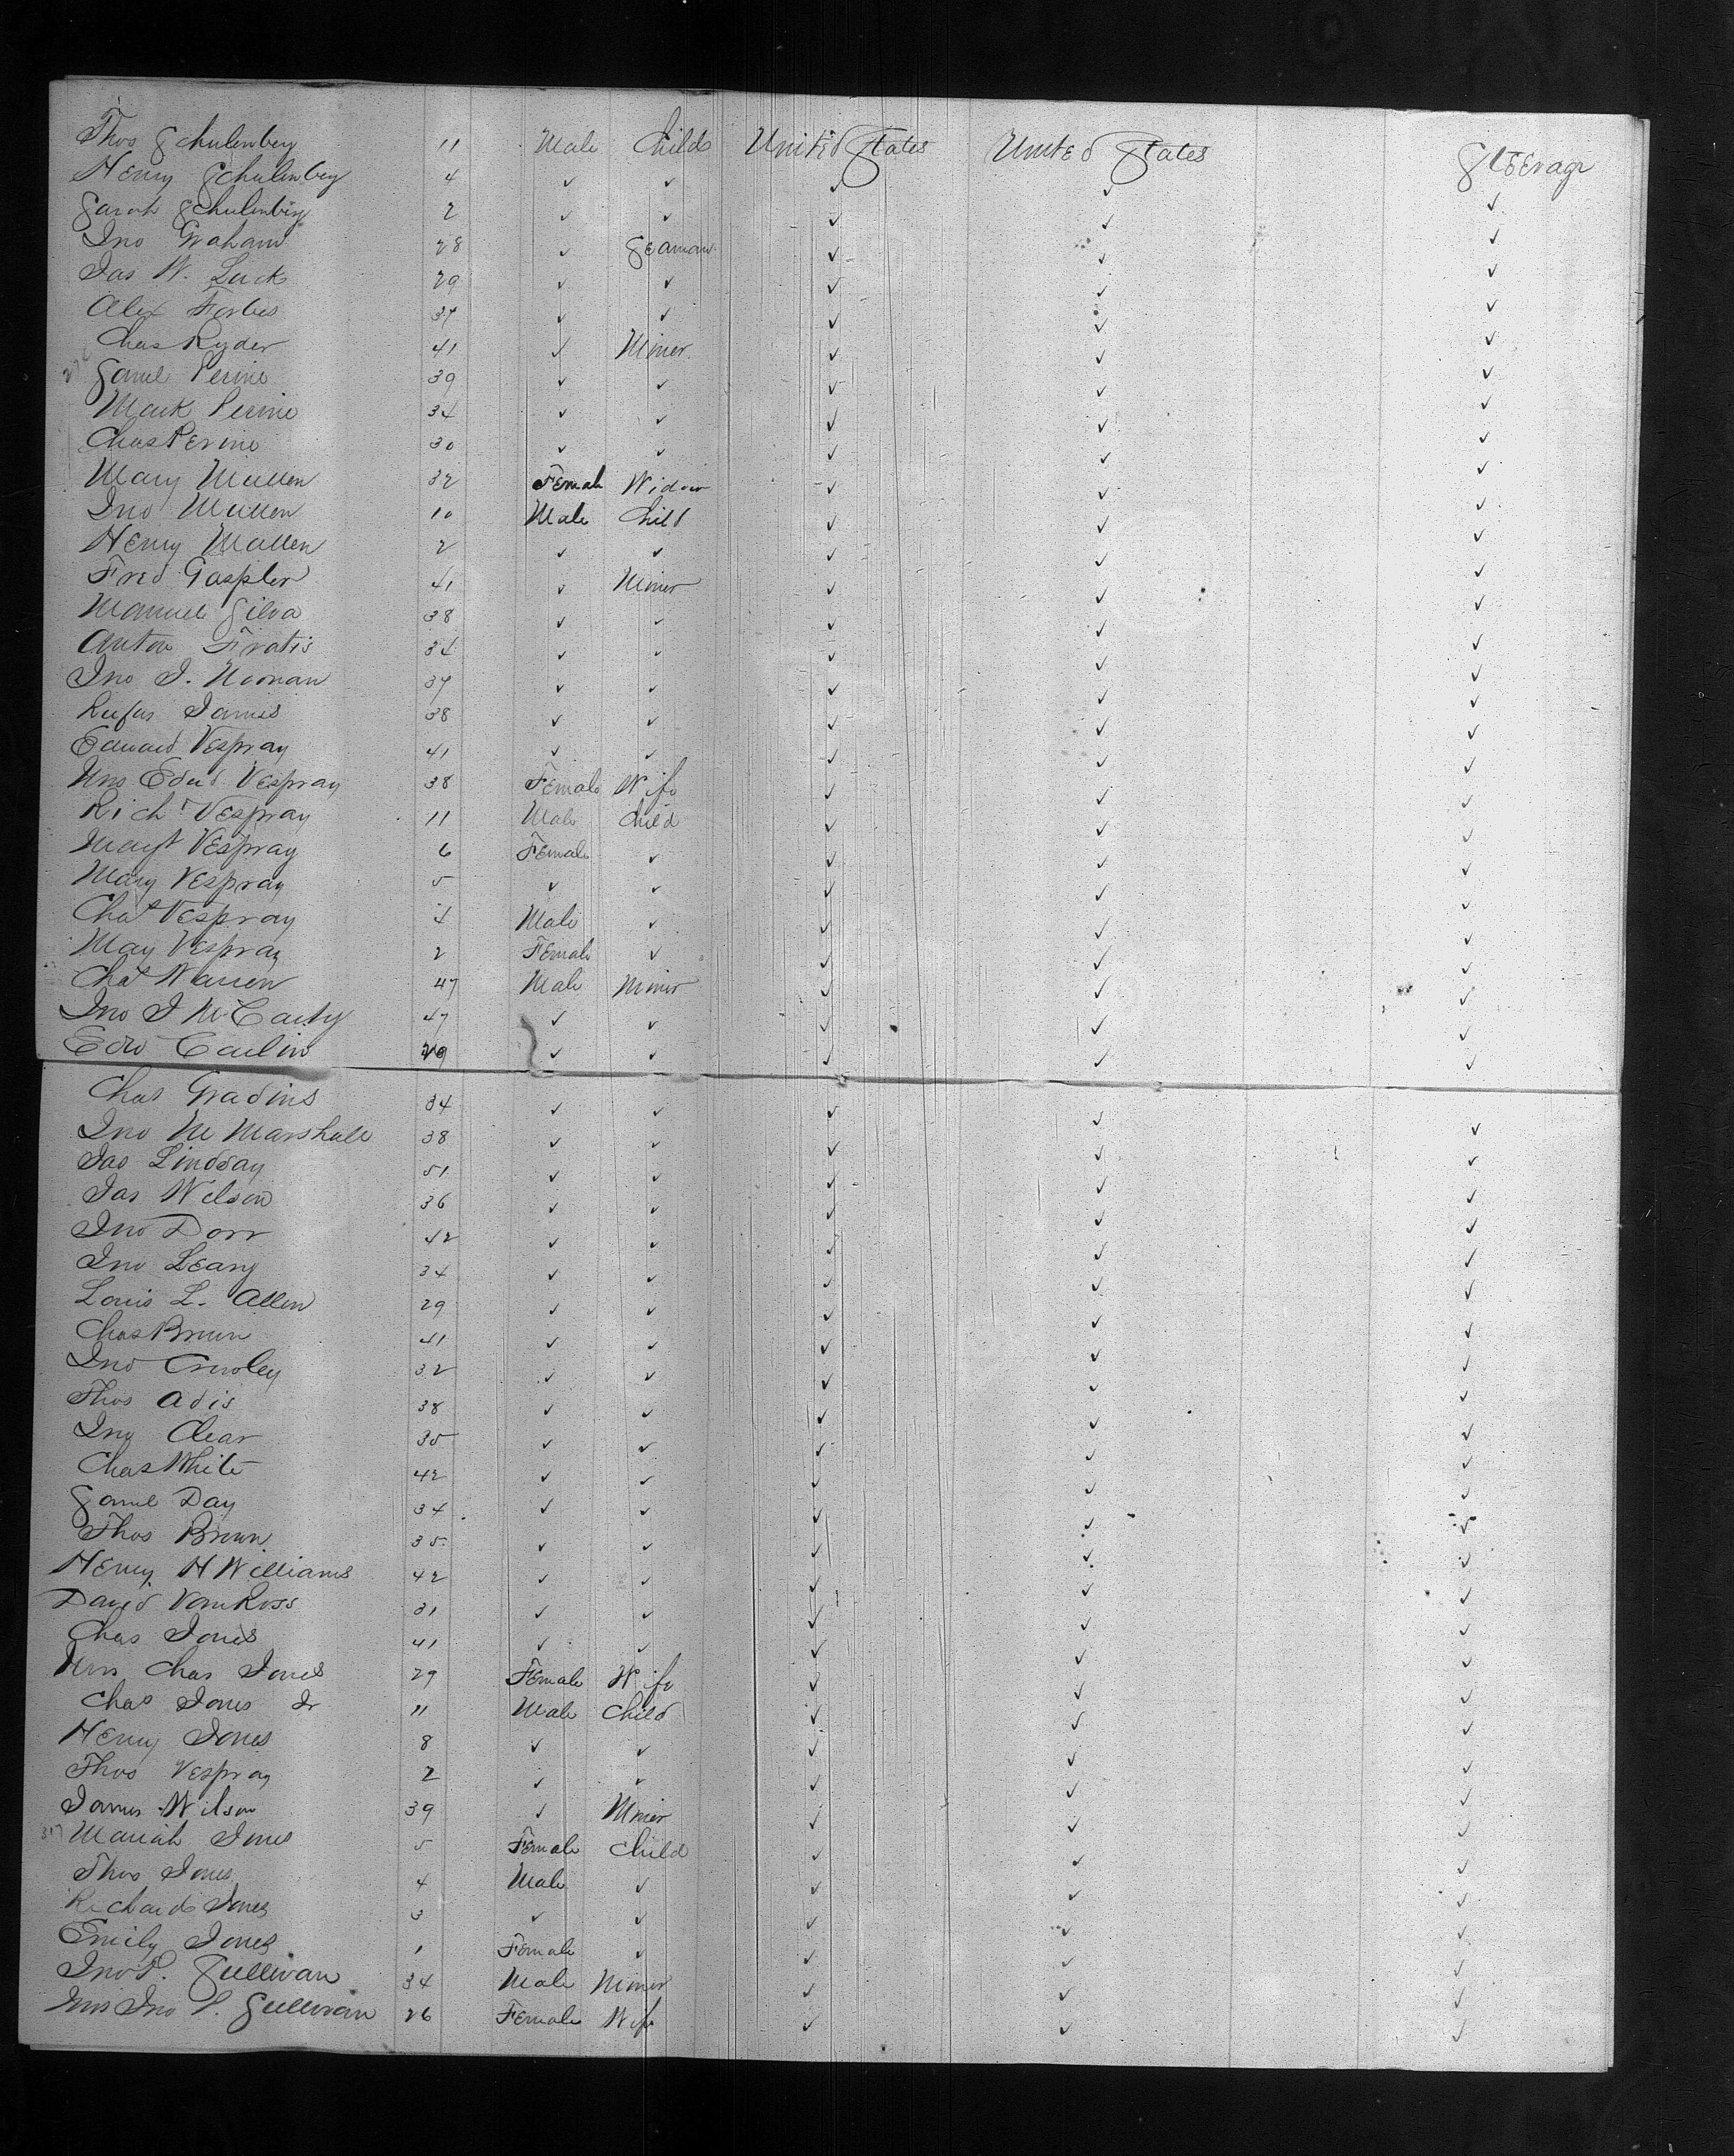 Thos Schulenberg 11 Male Childs United States United States Steerage
Henry Schulenberg 4 ✓ ✓ ✓ ✓ ✓
Sarah Schulenberg 2 ✓ ✓ ✓ ✓ ✓
Jno Graham 28 ✓ Seaman ✓ ✓ ✓
Jas W. Luck 29 ✓ ✓ ✓ ✓ ✓
Alex Forbes 37 ✓ ✓ ✓ ✓ ✓
Chas Ryder 41 ✓ Miner ✓ ✓ ✓
Saml Perine 39 ✓ ✓ ✓ ✓ ✓
Mark Perine 34 ✓ ✓ ✓ ✓ ✓
Chas Perine 30 ✓ ✓ ✓ ✓ ✓
Mary Mullen 32 Female Widow ✓ ✓ ✓
Jno Mullen 10 Male Child ✓ ✓ ✓
Henry Mullen 2 ✓ ✓ ✓ ✓ ✓
Fred Gaspler 41 ✓ Miner ✓ ✓ ✓
Manuel Silva 38 ✓ ✓ ✓ ✓ ✓
Anton Fratis 34 ✓ ✓ ✓ ✓ ✓
Jno J. Noonan 37 ✓ ✓ ✓ ✓ ✓
Rufus James 38 ✓ ✓ ✓ ✓ ✓
Edward Vespray 41 ✓ ✓ ✓ ✓ ✓
Mrs Edwd Vespray 38 Female Wife ✓ ✓ ✓
Richd Vespray 11 Male Child ✓ ✓ ✓
Magt Vespray 6 Female ✓ ✓ ✓ ✓
Mary Vespray 5 ✓ ✓ ✓ ✓ ✓
Chas Vespray 4 Male ✓ ✓ ✓ ✓
May Vespray 2 Female ✓ ✓ ✓ ✓
Chas Warren 47 Male Miner ✓ ✓ ✓
Jno J McCarty 47 ✓ ✓ ✓ ✓ ✓
Edw Carlin 29 ✓ ✓ ✓ ✓ ✓
Chas Gradins 34 ✓ ✓ ✓ ✓ ✓
Jno M Marshall 38 ✓ ✓ ✓ ✓ ✓
Jas Lindsay 51 ✓ ✓ ✓ ✓ ✓
Jas Wilson 36 ✓ ✓ ✓ ✓ ✓
Jno Dorr 42 ✓ ✓ ✓ ✓ ✓
Jno Leary 34 ✓ ✓ ✓ ✓ ✓
Louis L. Allen 29 ✓ ✓ ✓ ✓ ✓
Chas Brown 41 ✓ ✓ ✓ ✓ ✓
Jno Crowley 32 ✓ ✓ ✓ ✓ ✓
Thos Adis 38 ✓ ✓ ✓ ✓ ✓
Jno Clear 35 ✓ ✓ ✓ ✓ ✓
Chas White 42 ✓ ✓ ✓ ✓ ✓
Saml Day 34 ✓ ✓ ✓ ✓ ✓
Thos Brown 35 ✓ ✓ ✓ ✓ ✓
Henry H Williams 42 ✓ ✓ ✓ ✓ ✓
David VanRoss 31 ✓ ✓ ✓ ✓ ✓
Chas Jones 41 ✓ ✓ ✓ ✓ ✓
Mrs Chas Jones 29 Female Wife ✓ ✓ ✓
Chas Jones Jr 11 Male Child ✓ ✓ ✓
Henry Jones 8 ✓ ✓ ✓ ✓ ✓
Thos Vespray 2 ✓ ✓ ✓ ✓ ✓
James Wilson 39 ✓ Miner ✓ ✓ ✓
Mariah Jones 5 Female Child ✓ ✓ ✓
Thos Jones 4 Male ✓ ✓ ✓ ✓
Richard Jones 3 ✓ ✓ ✓ ✓ ✓
Emily Jones 1 Female ✓ ✓ ✓ ✓
Jno P. Sullivan 34 Male Miner ✓ ✓ ✓
Mrs Jno P. Sullivan 26 Female Wife ✓ ✓ ✓